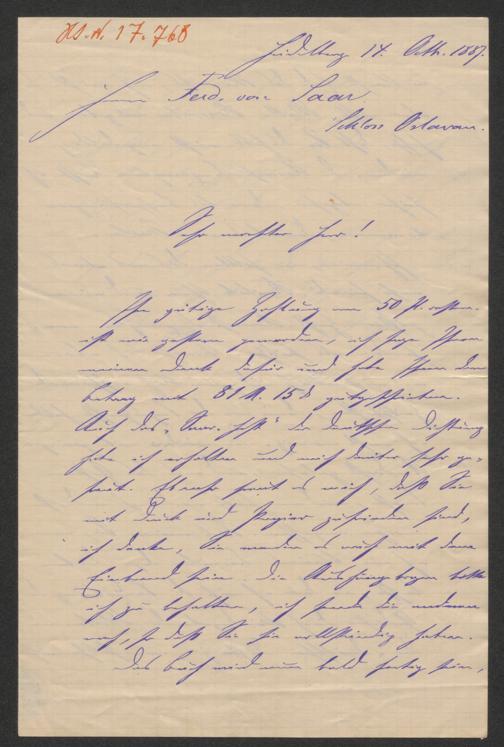 HS.N. 17.768
Heidelberg 14. Oktb. 1887.
Herrn Ferd. von Saar
Schloss Oslavan.
Sehr verehrter Herr!
Ihre gütige Zahlung von 50 fl.
ist mir gestern geworden, ich sage Ihnen
meinen Dank dafür und habe Ihnen den
Betrag mit 81 M. 15 d gutgeschrieben.
Auch das „Saar-Heft“ der Deutschen Dichtung
habe ich erhalten und mich darüber sehr ge-
freut. Ebenso freut es mich, daß Sie
mit Druck und Papier zufrieden sind,
ich denke, Sie werden es auch mit dem
Einband sein. Die Aushängebogen bitte
ich zu behalten, ich sende die anderen
nach, so daß Sie sie vollständig haben.
Das Buch wird nun bald fertig sein,